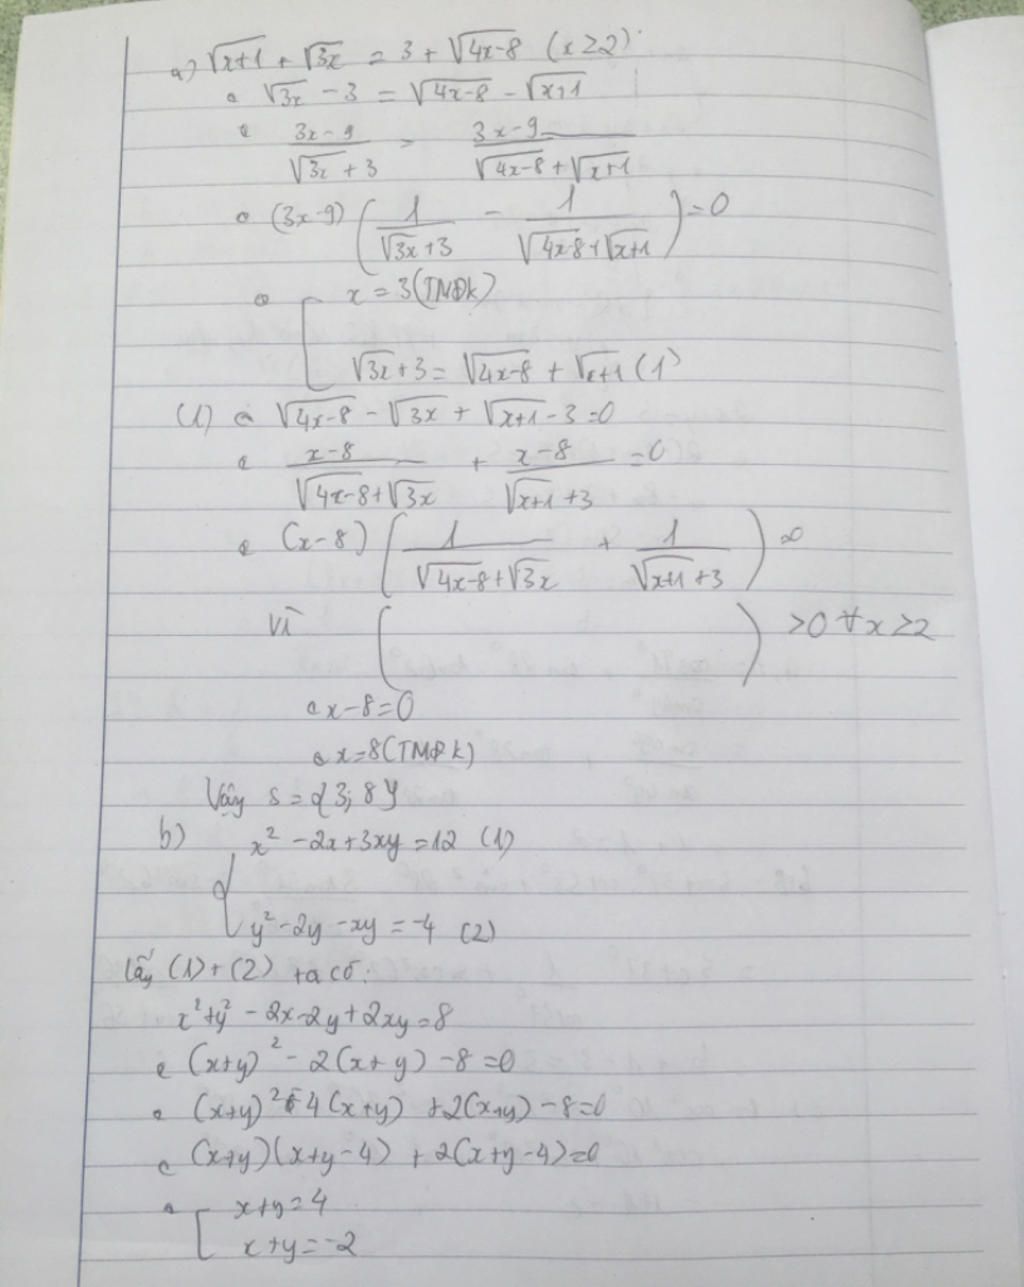 a) √x+1 + √3x = 3 + √4x-8 (x≥2)
⇔ √3x - 3 = √4x-8 - √x+1
⇔ (3x-9)/(√3x + 3) = (3x-9)/(√4x-8 + √x+1)
⇔ (3x-9) (1/(√3x+3) - 1/(√4x-8+√x+1)) = 0
⇔ [ x = 3 (TMĐK)
√3x+3 = √4x-8 + √x+1 (1)
(1) ⇔ √4x-8 - √3x + √x+1 - 3 = 0
⇔ (x-8)/(√4x-8+√3x) + (x-8)/(√x+1 +3) = 0
⇔ (x-8) (1/(√4x-8+√3x) + 1/(√x+1 +3)) = 0
Vì ( ) >0 ∀x≥2
⇔ x-8=0
⇔ x=8 (TMĐK)
Vậy S = {3; 8}
b) { x² - 2x + 3xy = 12 (1)
y² - 2y - xy = -4 (2)
Lấy (1)+(2) ta có:
x²+y² - 2x-2y+2xy=8
⇔ (x+y)² - 2(x+y) - 8 = 0
⇔ (x+y)² - 4(x+y) + 2(x+y) - 8 = 0
⇔ (x+y)(x+y-4) + 2(x+y-4)=0
⇔ [ x+y=4
x+y=-2